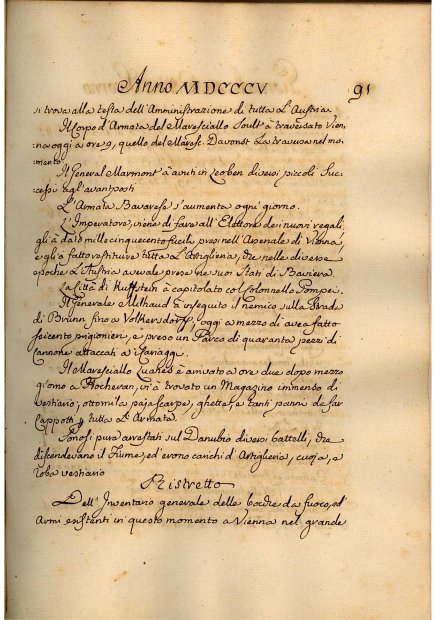 Anno MDCCCV 91
si trova alla testa dell'Amministrazione di tutta L'Austria
Il Corpo d'Armata del Maresciallo Soult à traversato Vien,
na oggi a ore 9, quello del Maresc. Davoust La traversa nel mo,
mento
Il General Marmont à avuti in Leoben diversi piccoli Suc,
cessi agl'avantposti
L'Armata Bavarese s'aumenta ogni giorno.
L'Imperatore, viene di fare all'Elettore dei nuovi regali,
gli à dato mille cinquecento fucili presi nell'Arsenale di Vienna,
e gli à fatto restituire tutta L'Artiglieria, che nelle diverse
epoche L'Austria aveva prese ne suoi Stati di Baviera
La Città di Kuffstein à capitolato col Colonnello Pompei.
Il Generale Milhaud à inseguito il nemico sulla Strada
di Brunn fino a Volkersdorff, oggi a mezzo dì aveva fatto
seicento prigionieri, e preso un Parco di quaranta pezzi di
Cannone attaccati a i Cavaggi.
Il Maresciallo è arrivato a ore due dopo mezzo
giorno a, vi à trovato un Magazino immenso di
vestiario, ottomila paja scarpe, ghette, e tanti panni da far
Cappotti a tutta L'Armata.
Sonosi pure arrestati sul Danubio diversi battelli, che
discendevano il Fiume, ed erono carichi d'Artiglieria, cuoja, e
roba vestiario
Ristretto
Dell'Inventario generale delle bocche da fuoco, ed'
Armi esistenti in questo momento a Vienna nel grande